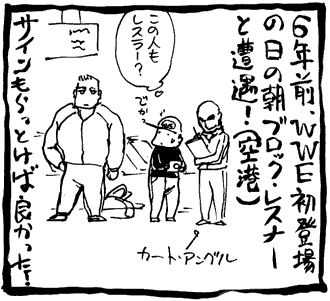 6年前、WWE初登場
の日の朝ブロック・レスナー
と遭遇!(空港)
この人も
レスラー?
でか
カート・アングル
サインもらっとけば良かった!